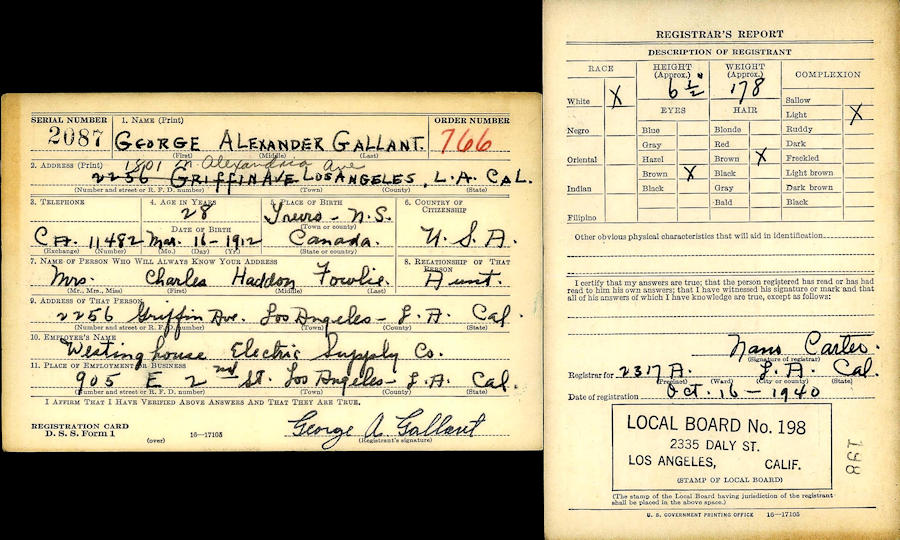 SERIAL NUMBER
2087
1. NAME (Print)
GEORGE ALEXANDER GALLANT.
(First) (Middle) (Last)
ORDER NUMBER
766
2. ADDRESS (Print)
1801 N. Alexandria Ave
2256 GRIFFIN AVE. LOS ANGELES, L.A. CAL.
(Number and street or R. F. D. number) (Town) (County) (State)
3. TELEPHONE
CA. 11482
(Exchange) (Number)
4. AGE IN YEARS
28
DATE OF BIRTH
Mar. 16-1912
(Mo.) (Day) (Yr.)
5. PLACE OF BIRTH
Truro - N.S.
(Town or county)
Canada.
(State or country)
6. COUNTRY OF CITIZENSHIP
U.S.A.
7. NAME OF PERSON WHO WILL ALWAYS KNOW YOUR ADDRESS
Mrs. Charles Haddon Fowlie.
(Mr., Mrs., Miss) (First) (Middle) (Last)
8. RELATIONSHIP OF THAT PERSON
Aunt.
9. ADDRESS OF THAT PERSON
2256 Griffin Ave. Los Angeles - L.A. Cal.
(Number and street or R. F. D. number) (Town) (County) (State)
10. EMPLOYER'S NAME
Westinghouse Electric Supply Co.
11. PLACE OF EMPLOYMENT OR BUSINESS
905 E 2nd St. Los Angeles - L.A. Cal.
(Number and street or R. F. D. number) (Town) (County) (State)
I AFFIRM THAT I HAVE VERIFIED ABOVE ANSWERS AND THAT THEY ARE TRUE.
REGISTRATION CARD
D. S. S. Form 1
(over)
16-17105
George A. Gallant
(Registrant's signature)
REGISTRAR'S REPORT
DESCRIPTION OF REGISTRANT
RACE
White X
Negro
Oriental
Indian
Filipino
HEIGHT
(Approx.)
6 ½"
WEIGHT
(Approx.)
178
EYES
Blue
Gray
Hazel
Brown X
Black
HAIR
Blonde
Red
Brown X
Black
Gray
Bald
COMPLEXION
Sallow
Light X
Ruddy
Dark
Freckled
Light brown
Dark brown
Black
Other obvious physical characteristics that will aid in identification
I certify that my answers are true; that the person registered has read or has had
read to him his own answers; that I have witnessed his signature or mark and that
all of his answers of which I have knowledge are true, except as follows:
Nans Carter.
(Signature of registrar)
Registrar for 2317 A. L.A. Cal.
(Precinct) (Ward) (City or county) (State)
Date of registration Oct. 16 - 1940
LOCAL BOARD No. 198
2335 DALY ST.
LOS ANGELES, CALIF.
(STAMP OF LOCAL BOARD)
198
(The stamp of the Local Board having jurisdiction of the registrant
shall be placed in the above space.)
U. S. GOVERNMENT PRINTING OFFICE 16-17105